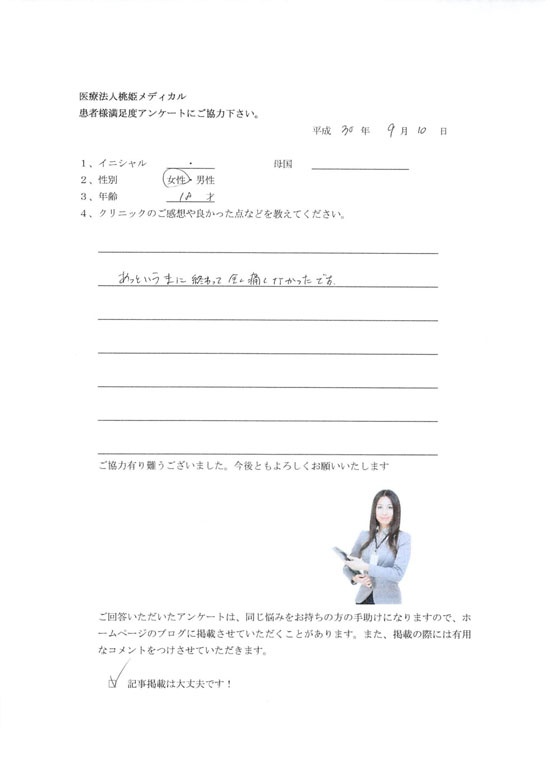 医療法人桃姫メディカル
患者様満足度アンケートにご協力下さい。
平成 30 年 9 月 10 日
1、イニシャル ・ 母国
2、性別 女性・男性
3、年齢 18 才
4、クリニックのご感想や良かった点などを教えてください。
あっというまに終わって全く痛くなかったです。
ご協力有り難うございました。今後ともよろしくお願いいたします
ご回答いただいたアンケートは、同じ悩みをお持ちの方の手助けになりますので、ホ
ームページのブログに掲載させていただくことがあります。また、掲載の際には有用
なコメントをつけさせていただきます。
☑ 記事掲載は大丈夫です！